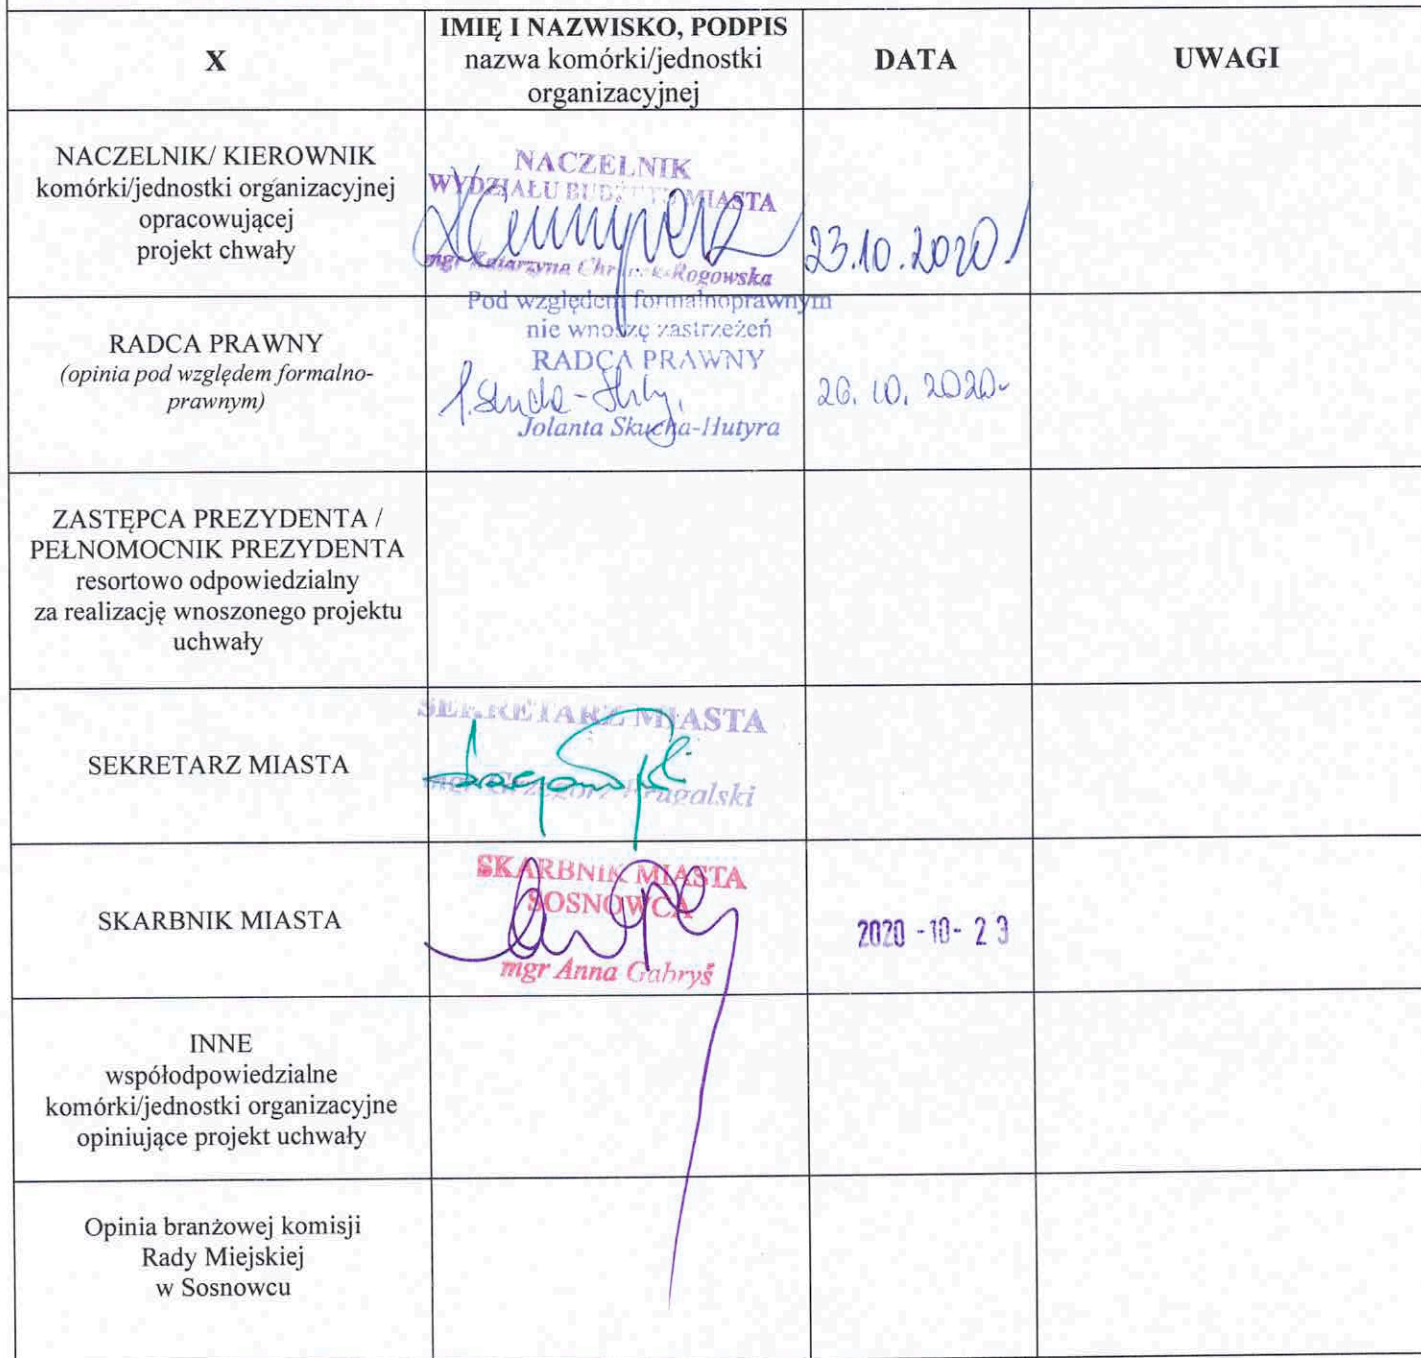 X
IMIĘ I NAZWISKO, PODPIS
nazwa komórki/jednostki
organizacyjnej
DATA
UWAGI
NACZELNIK/ KIEROWNIK
komórki/jednostki organizacyjnej
opracowującej
projekt chwały
NACZELNIK
WYDZIAŁU BUDŻETU MIASTA
mgr Katarzyna
Rogowska
23.10.2020
RADCA PRAWNY
(opinia pod względem formalno-
prawnym)
Pod względem formalnoprawnym
nie wnoszę zastrzeżeń
RADCA PRAWNY
Jolanta Skucha-Hutyra
26.10.2020
ZASTĘPCA PREZYDENTA /
PEŁNOMOCNIK PREZYDENTA
resortowo odpowiedzialny
za realizację wnoszonego projektu
uchwały
SEKRETARZ MIASTA
SEKRETARZ MIASTA
mgr Grzegorz
SKARBNIK MIASTA
SKARBNIK MIASTA
SOSNOWCA
mgr Anna Gabryś
2020 -10- 23
INNE
współodpowiedzialne
komórki/jednostki organizacyjne
opiniujące projekt uchwały
Opinia branżowej komisji
Rady Miejskiej
w Sosnowcu